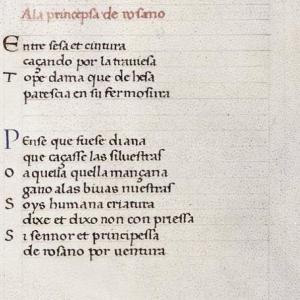 A la princepsa de rosano
Entre sesa et cintura
caçando por la traviesa
Tope dama que de hesa
parescia en su fermosura
Pense que fuese diana
que caçasse las silvestras
O aquella quella mançana
gano a las bivas nuestras
Soys humana criatura
dixe et dixo non con priessa
Si sennor et principessa
de rosano por ventura